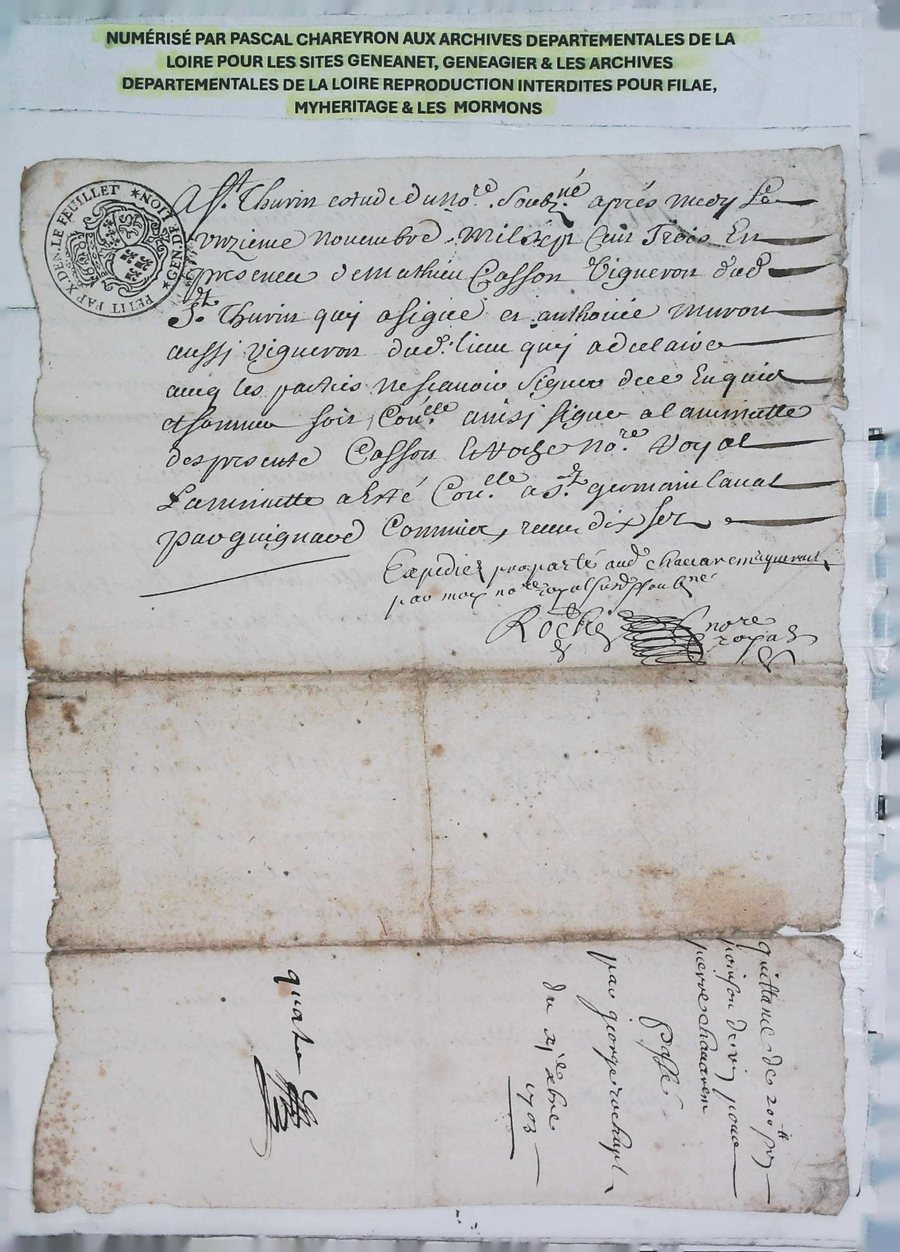 NUMÉRISÉ PAR PASCAL CHAREYRON AUX ARCHIVES DEPARTEMENTALES DE LA
LOIRE POUR LES SITES GENEANET, GENEAGIER & LES ARCHIVES
DEPARTEMENTALES DE LA LOIRE REPRODUCTION INTERDITES POUR FILAE,
MYHERITAGE & LES MORMONS
PETIT PAP. X DEN. LE FEUILLET * GEN. DE LION *
A St. Thurin estude du nore. soubzné après midy Le
unzieme novembre Mil sept Cens Trois En
presence de Mathieu Casson Vigneron dud
St. Thurin quy a signé et anthoine muron
aussj vigneron dud. lieu quy a declairé
avecq les parties ne scavoir signer de ce Enquis
et sommés soit Con.lle ainsj signe a la minutte
des presente Casson et Roche no.re Royal
La minutte a Esté Con.lle a St. germain laval
par guignard Commis, receu dix sol
Expedié audt chavarem
par moy no.re royal soubsné
Roche nore
royal
quittance de 200 tt
pour
pierre chavarem
Passé
par george roche
du xje xbre
1703